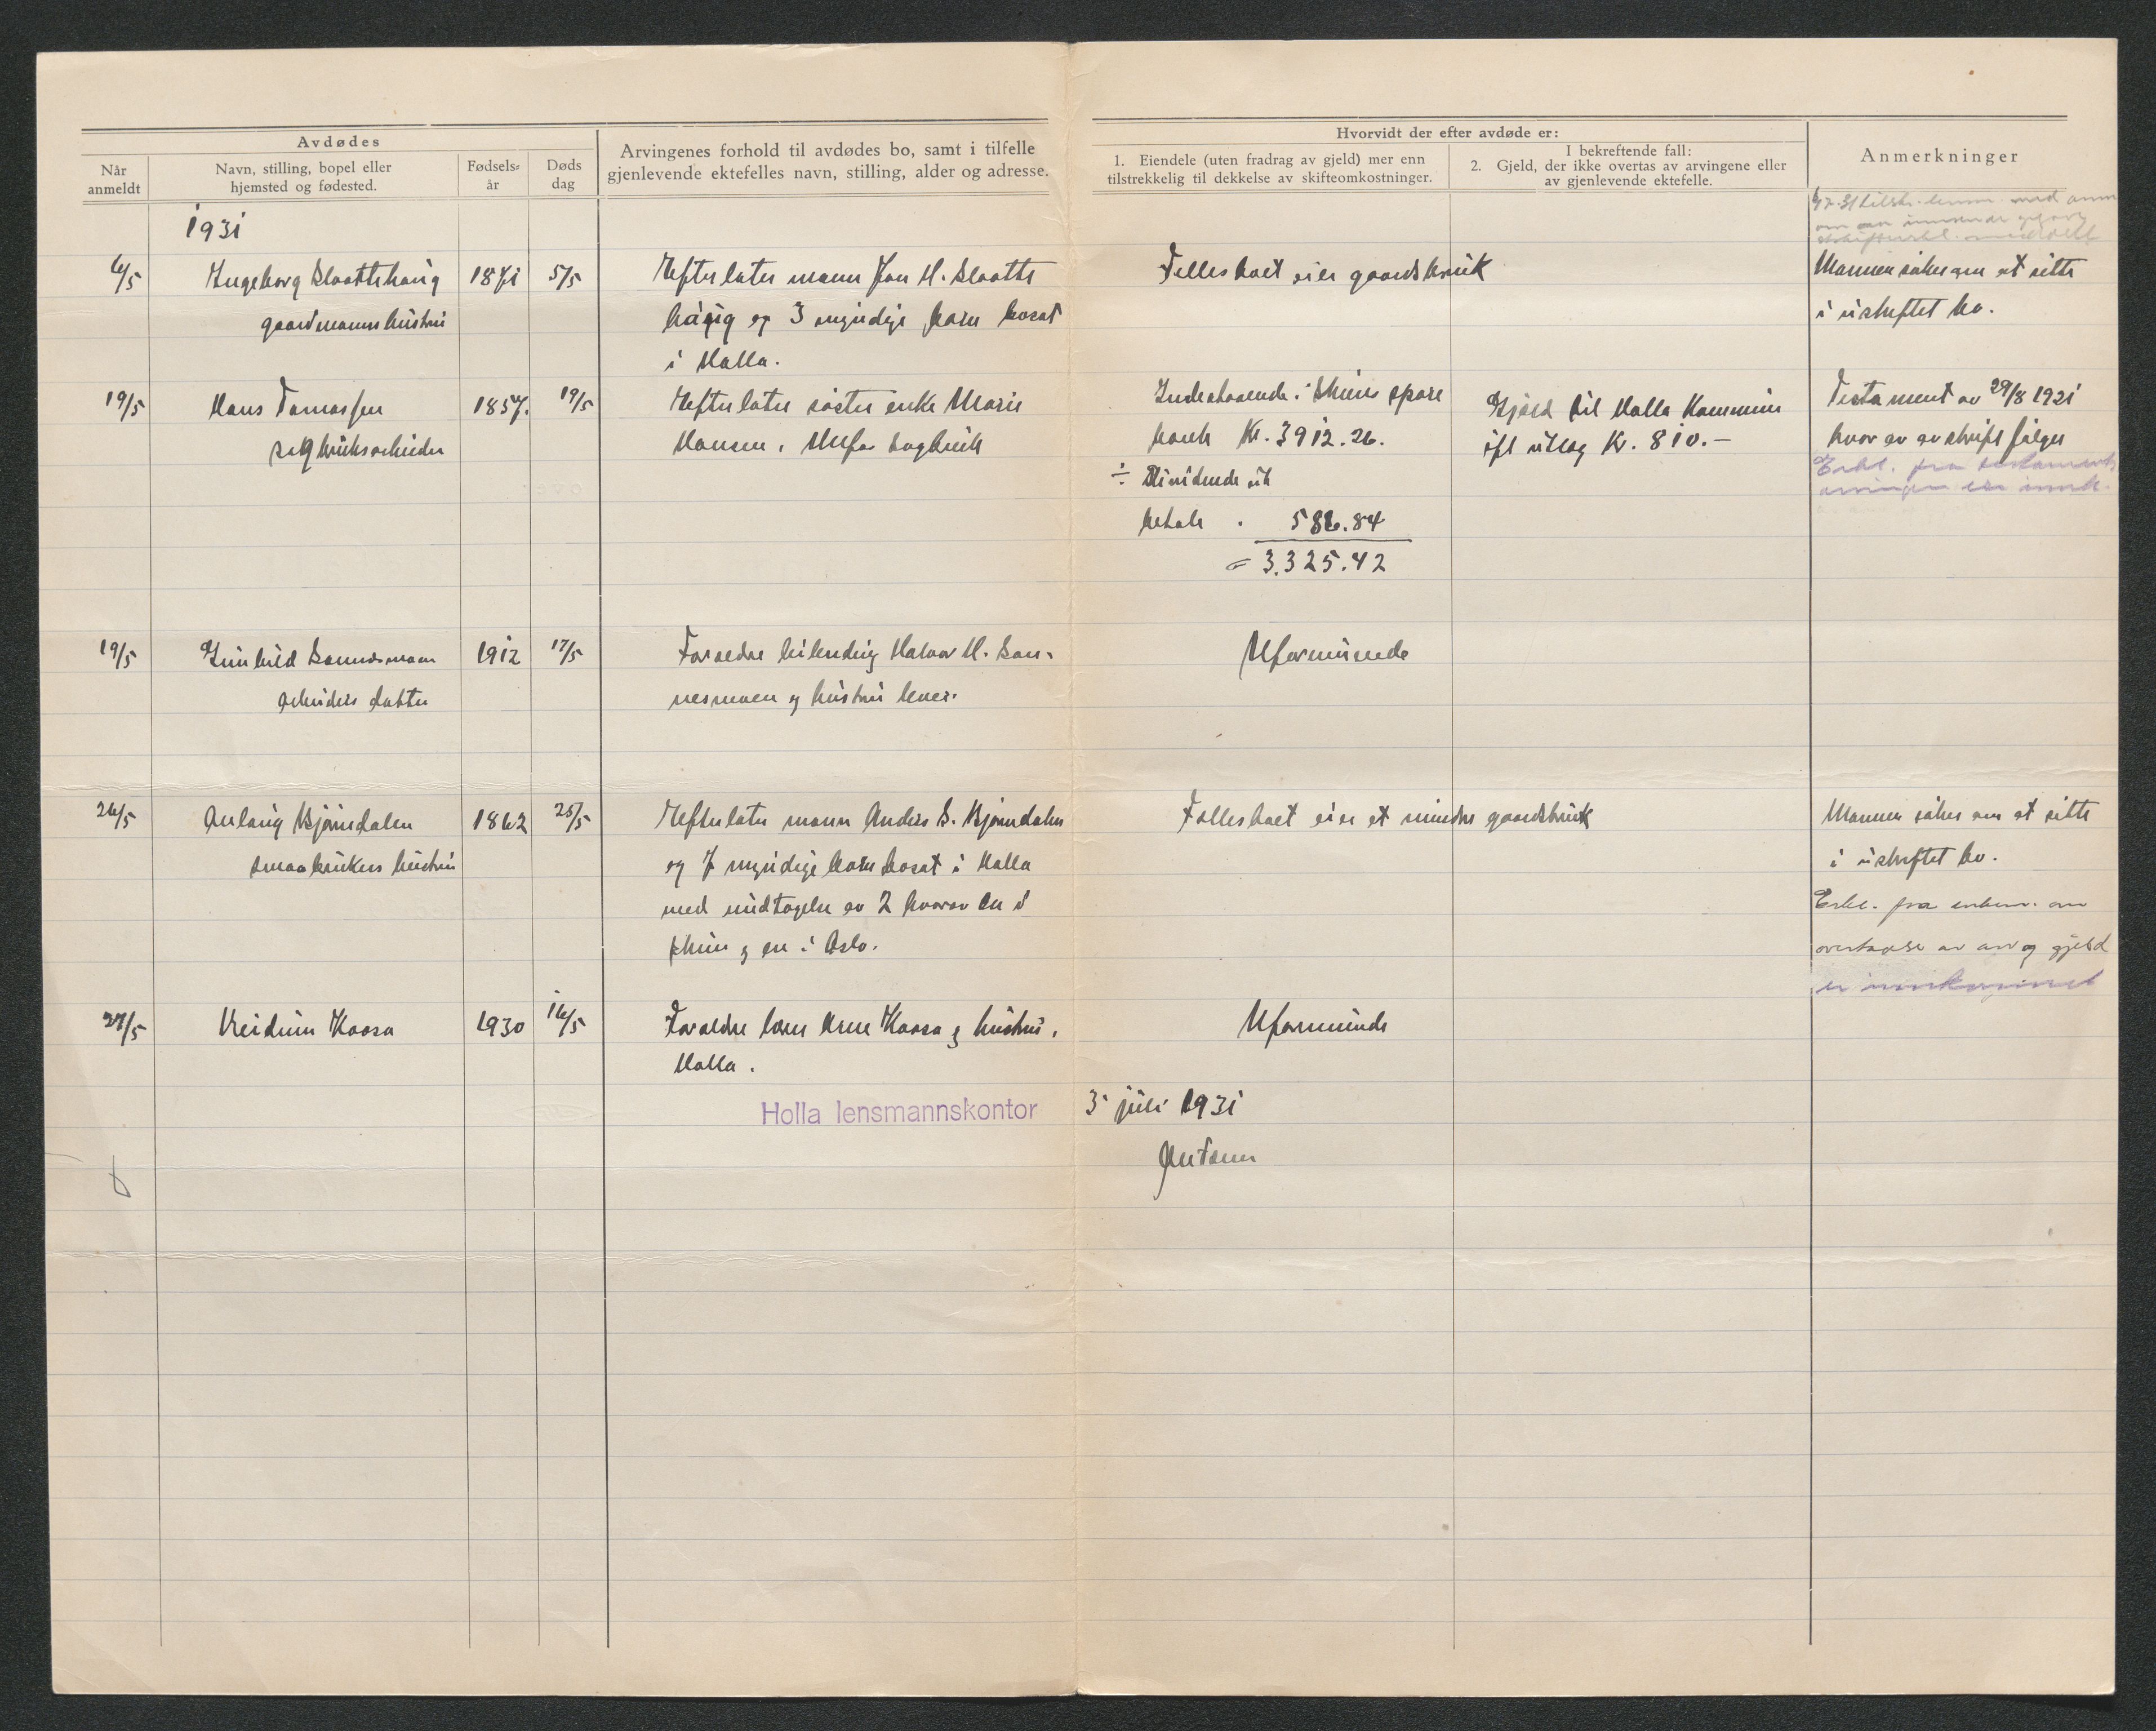 Avdødes
Når anmeldt
Navn, stilling, bopel eller hjemsted og fødested.
Fødsels-år
Døds dag
Arvingenes forhold til avdødes bo, samt i tilfelle gjenlevende ektefelles navn, stilling, alder og adresse.
Hvorvidt der efter avdøde er:
1. Eiendele (uten fradrag av gjeld) mer enn tilstrekkelig til dekkelse av skifteomkostninger.
I bekreftende fall:
2. Gjeld, der ikke overtas av arvingene eller av gjenlevende ektefelle.
Anmerkninger
1931
6/5
Ingeborg Slaattehaug
gaardmanns hustru
1871
5/5
Efterlater mann Jon H. Slaatte
haug og 3 myndige barn bosat
i Holla.
Felles boet eier gaardsbruk
Mannen søker om at sitte
i uskiftet bo.
19/5
Hans Tomassen
1857.
19/5
Efterlater søster enke Marie
Hansen, Ulefos
Indestaaende i Skiens spare
bank Kr. 3912.26.
÷ Dividende ut
betalt " 586.84
= 3.325.42
Gjæld til Holla Kommune
ifl utlæg Kr. 810.-
Testament av 29/8 1921
hvor av avskrift følger
Erkl. fra testaments
arvingen er innk.
19/5
Gunhild
arbeiders datter
1912
17/5
Forældre Halvor H. San-
nesmoen og hustru lever.
Uformuende
26/5
Anlaug Bjørndalen
smaabrukers hustru
1862
25/5
Efterlater mann Anders S. Bjørndalen
og 7 myndige barn bosat i Holla
med undtagelse av 2 hvorav en i
Skien og en i Oslo.
Felles boet eier et mindre gaardsbruk
Mannen søker om at sitte
i uskiftet bo.
Erkl. fra enkem. om
overtagelse av arv og gjeld
er innkommet
27/5
Reidun Kaasa
1930
16/5
Forældre Arne Kaasa og hustru,
Holla.
Uformuende
Holla lensmannskontor 3 juli 1931